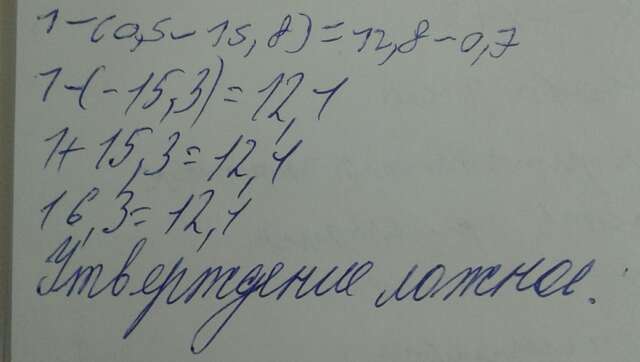 1-(0,5-15,8)=12,8-0,7
1-(-15,3)=12,1
1+15,3=12,1
16,3=12,1
Утверждение ложное.